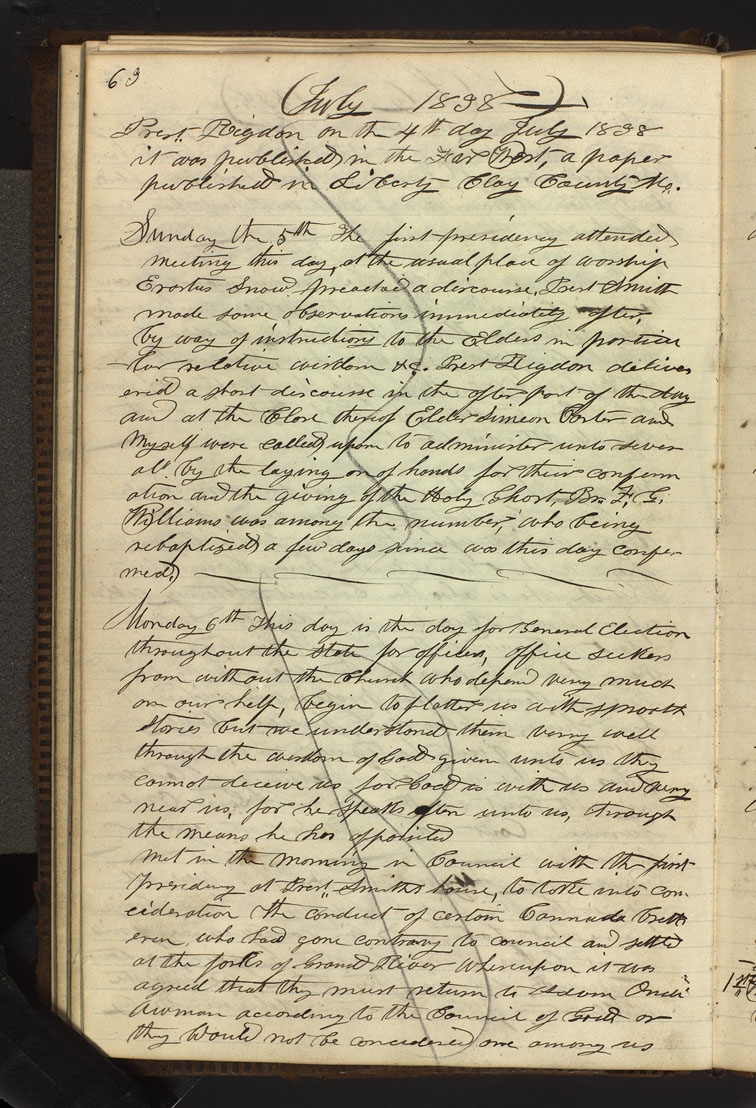 63
July 1838
Prest. Rigdon on the 4th day July 1838
it was published in the Far West, a paper
published in Liberty Clay County Mo.
Sunday the 5th The first presidency attended
meeting this day, at the usual place of worship
Erastus Snow preached a discourse, Prest Smith
made some observations immediately after,
by way of instructions to the Elders in particu
lar relative wisdom &c. Prest Rigdon deliver
ered a short discourse in the after part of the day
and at the Close thereof Elder Simeon Carter and
Myself were called upon to administer unto sever
all by the laying on of hands for their conferm
ation and the giving of the Holy Ghost, Br. F. G.
Williams was among the number, who being
rebaptized a few days since was this day confer
med,
Monday 6th This day is the day for General Election
throughout the State for officers, office seekers
from without the Church who depend very much
on our help, begin to flatter us with smooth
stories but we understand them very well
through the wisdom of God given unto us they
cannot deceive us for God is with us and very
near us, for he speaks often unto us, through
the means he has appointed
Met in the morning in Council with the first
presidency at Prest. Smiths house, to take into con
cideration the conduct of certain Cannada breth
eren, who had gone contrary to council and settled
at the forks of Grand River whereupon it was
agreed that they must return to Adam Ondi
Awman according to the Council of God or
they Would not be concidered one among us